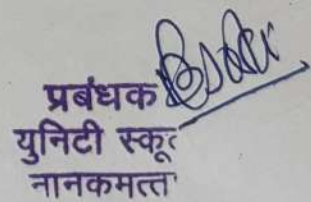 प्रबंधक
युनिटी स्कू
नानकमत्त